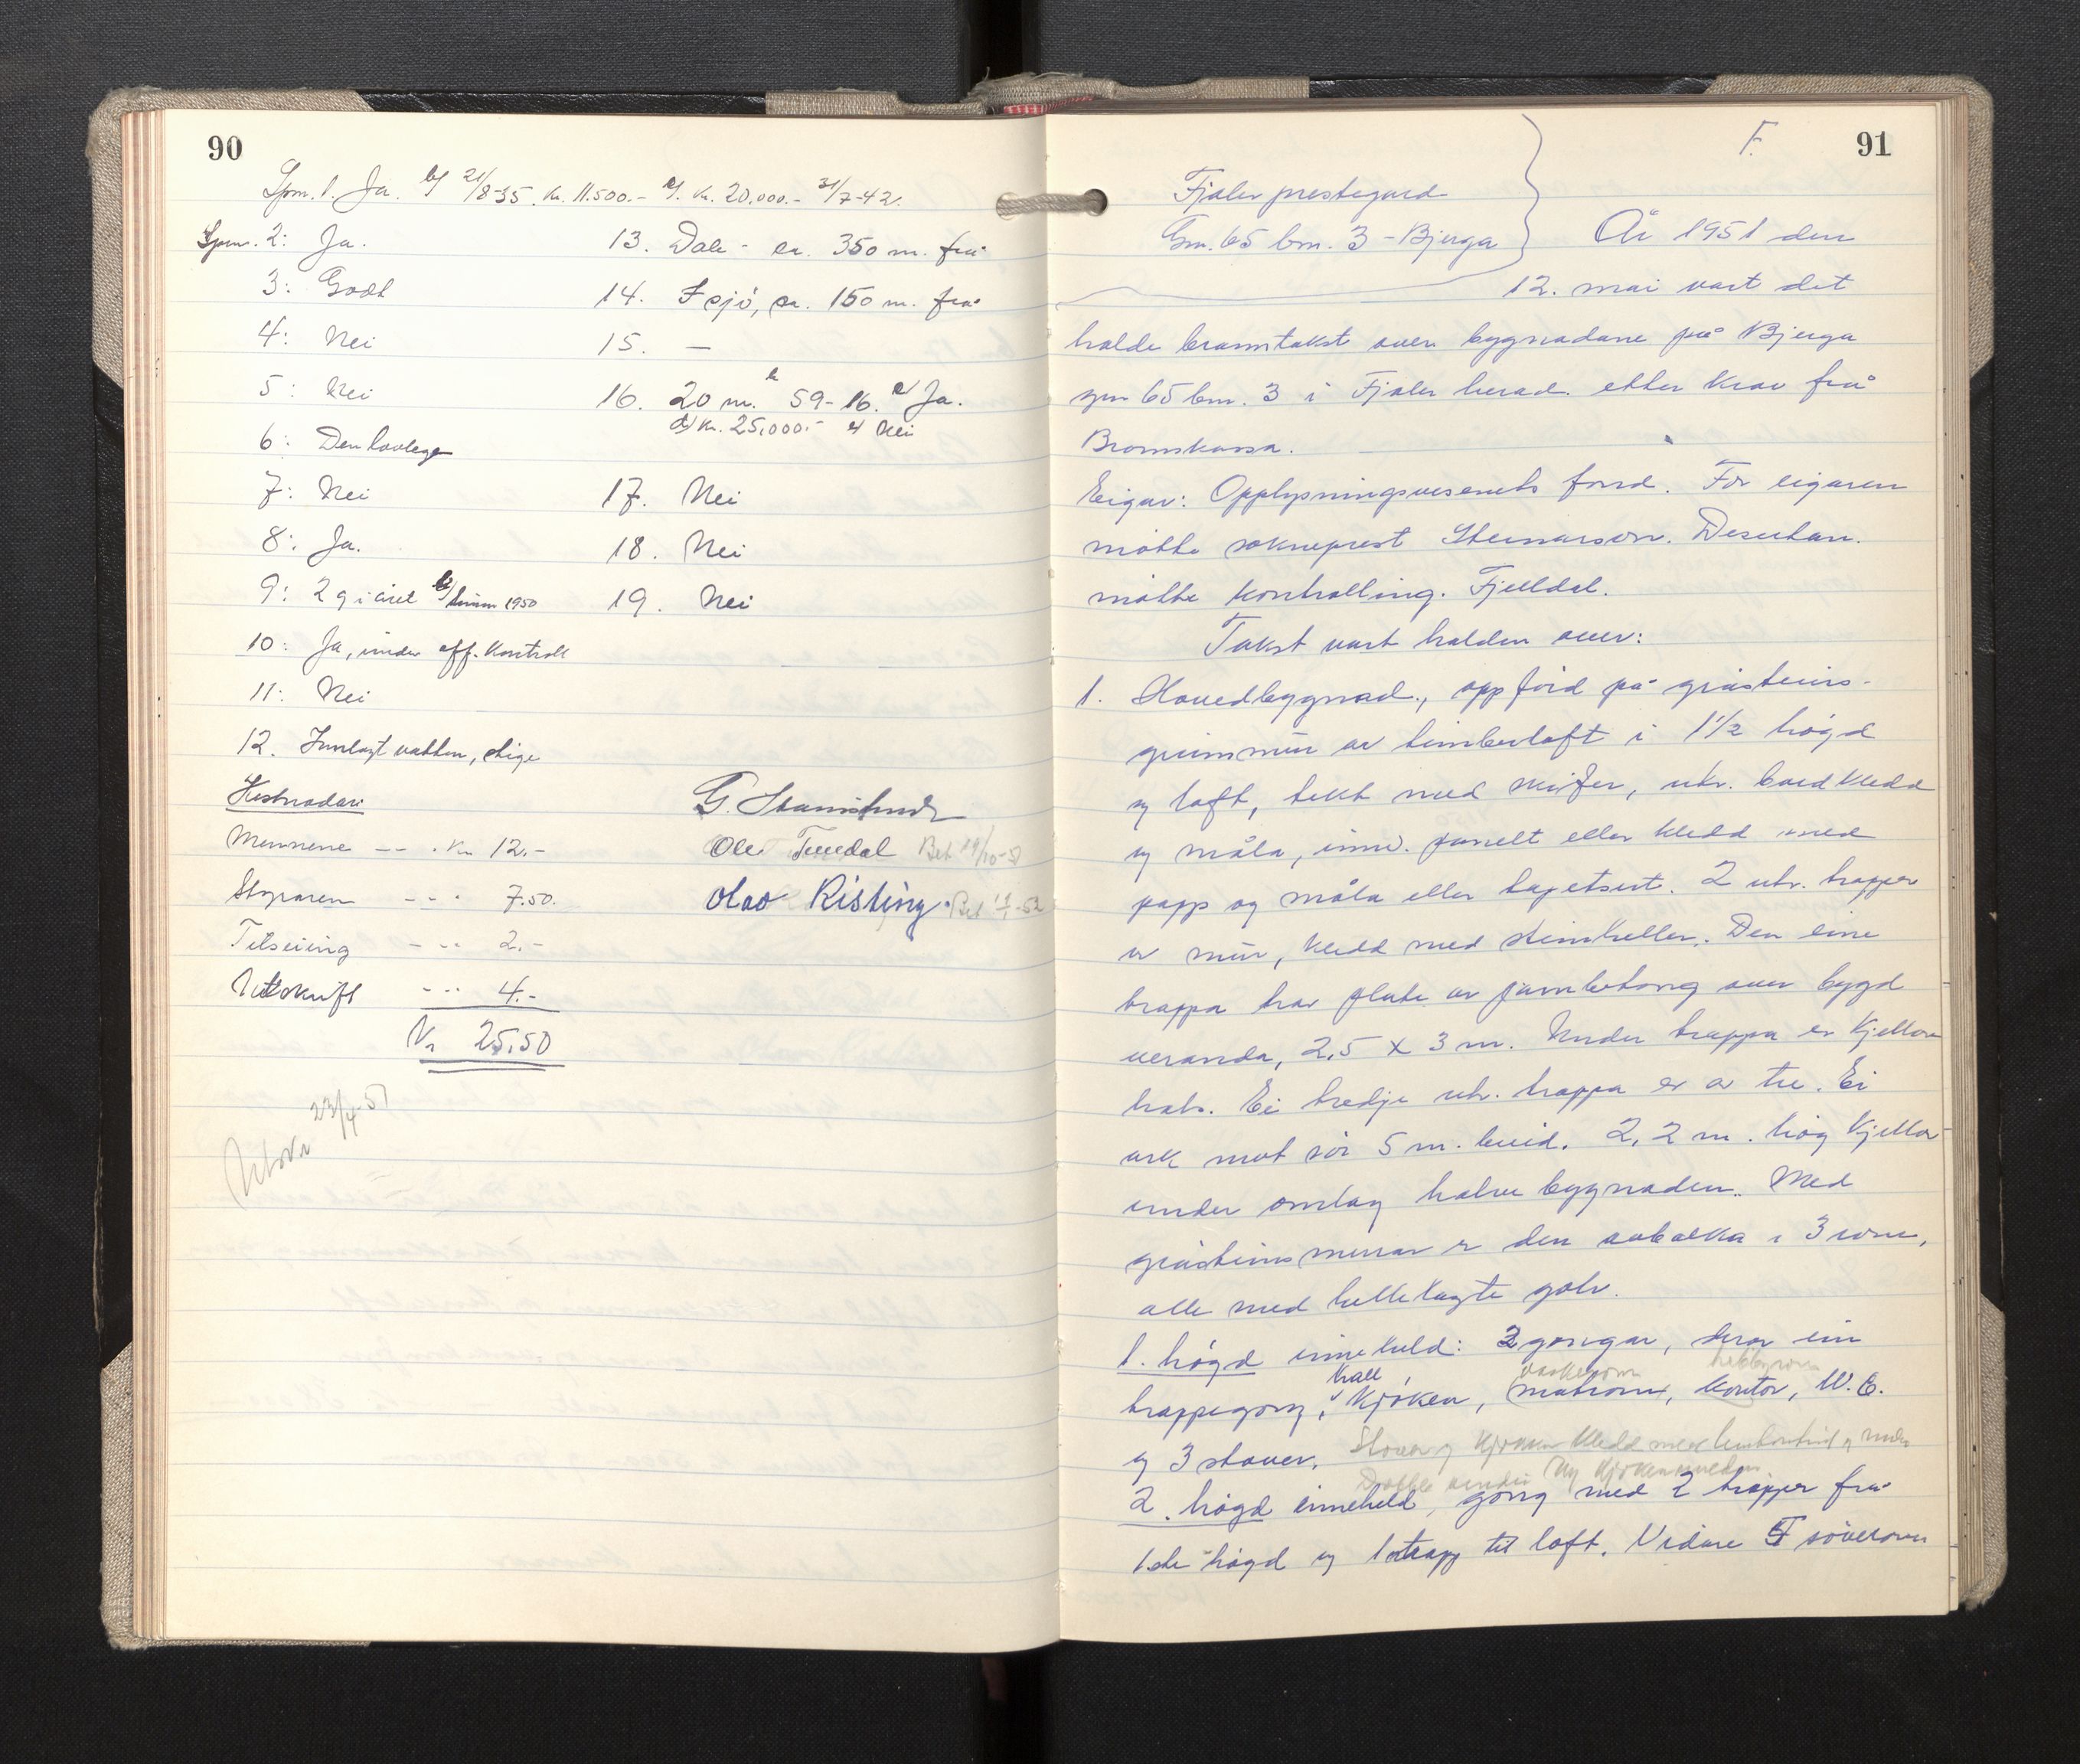 90
Spm. 1. Ja. b/ 21/8-35. kr. 11.500.- c/. kr. 20.000.- 31/7-42.
Spm. 2: Ja.
3: Godt
4: Nei
5: Nei
6: Den lovlege
7: Nei
8: Ja.
9: 2 g i året b/ 1950
10: Ja, under off. kontroll
11: Nei
12. Innlagt vatten, stige
13. Dale - ca. 350 m. frå
14. I sjø, ca. 150 m. frå
15. —
16. 20 m. b 59-16. c/ Ja.
d/ kr. 25.000.- e/ Nei
17. Nei
18. Nei
19. Nei
Kostnadar:
Mennene -- . kr 12.-
Styraren - - - 7.50.
Tilseiing - -- 2.-
Utskrift - - - 4.-
Kr 25.50
Utskr 23/4-51
G.
Ole Tundal Bet 19/10-51
Olav Risting. Bet
F. 91
Fjaler prestegard
Gm. 65 bm. 3 - Bjerga
År 1951 den
12. mai vart det
halde branntakst over bygnadane på Bjerga
gm 65 bm. 3 i Fjaler herad. etter krav frå
Brannkassa.
Eigar: Opplysningsvesenets fond. For eigaren
møtte sokneprest Steinarson. Desutan.
møtte kontrolling. Fjelldal.
Takst vart halden over:
1. Hovedbygnad., oppførd på gråsteins-
grunnmur av timberloft i 1 1/2 høgd
og loft, tekt med skifer, utv. bordkledd
og måla, innv. panelt eller kledd med
papp og måla eller tapetsert. 2 utv. trapper
av mur, kledd med steinheller. Den eine
trappa har plate av jarnbetong over bygd
veranda, 2,5 x 3 m. Under trappa er kjellar
hals. Ei tredje utv. trappa er av tre. Ei
ark mot sør 5 m. breid. 2,2 m. høg kjellar
under omlag halve bygnaden. Med
gråsteinsmurar er den avbalka i 3 rom,
alle med hellelagte golv.
1. høgd inneheld: 2 gongar, ein
vaskerom
trappegong, hall kjøken, matrom, kontor, W.C.
og 3 stover. Stover og kjøken kledd med
Ny kjøken
2. høgd inneheld, gong med 2 trapper frå
1ste høgd og 1 trapp til loft. Vidare 5 soverom